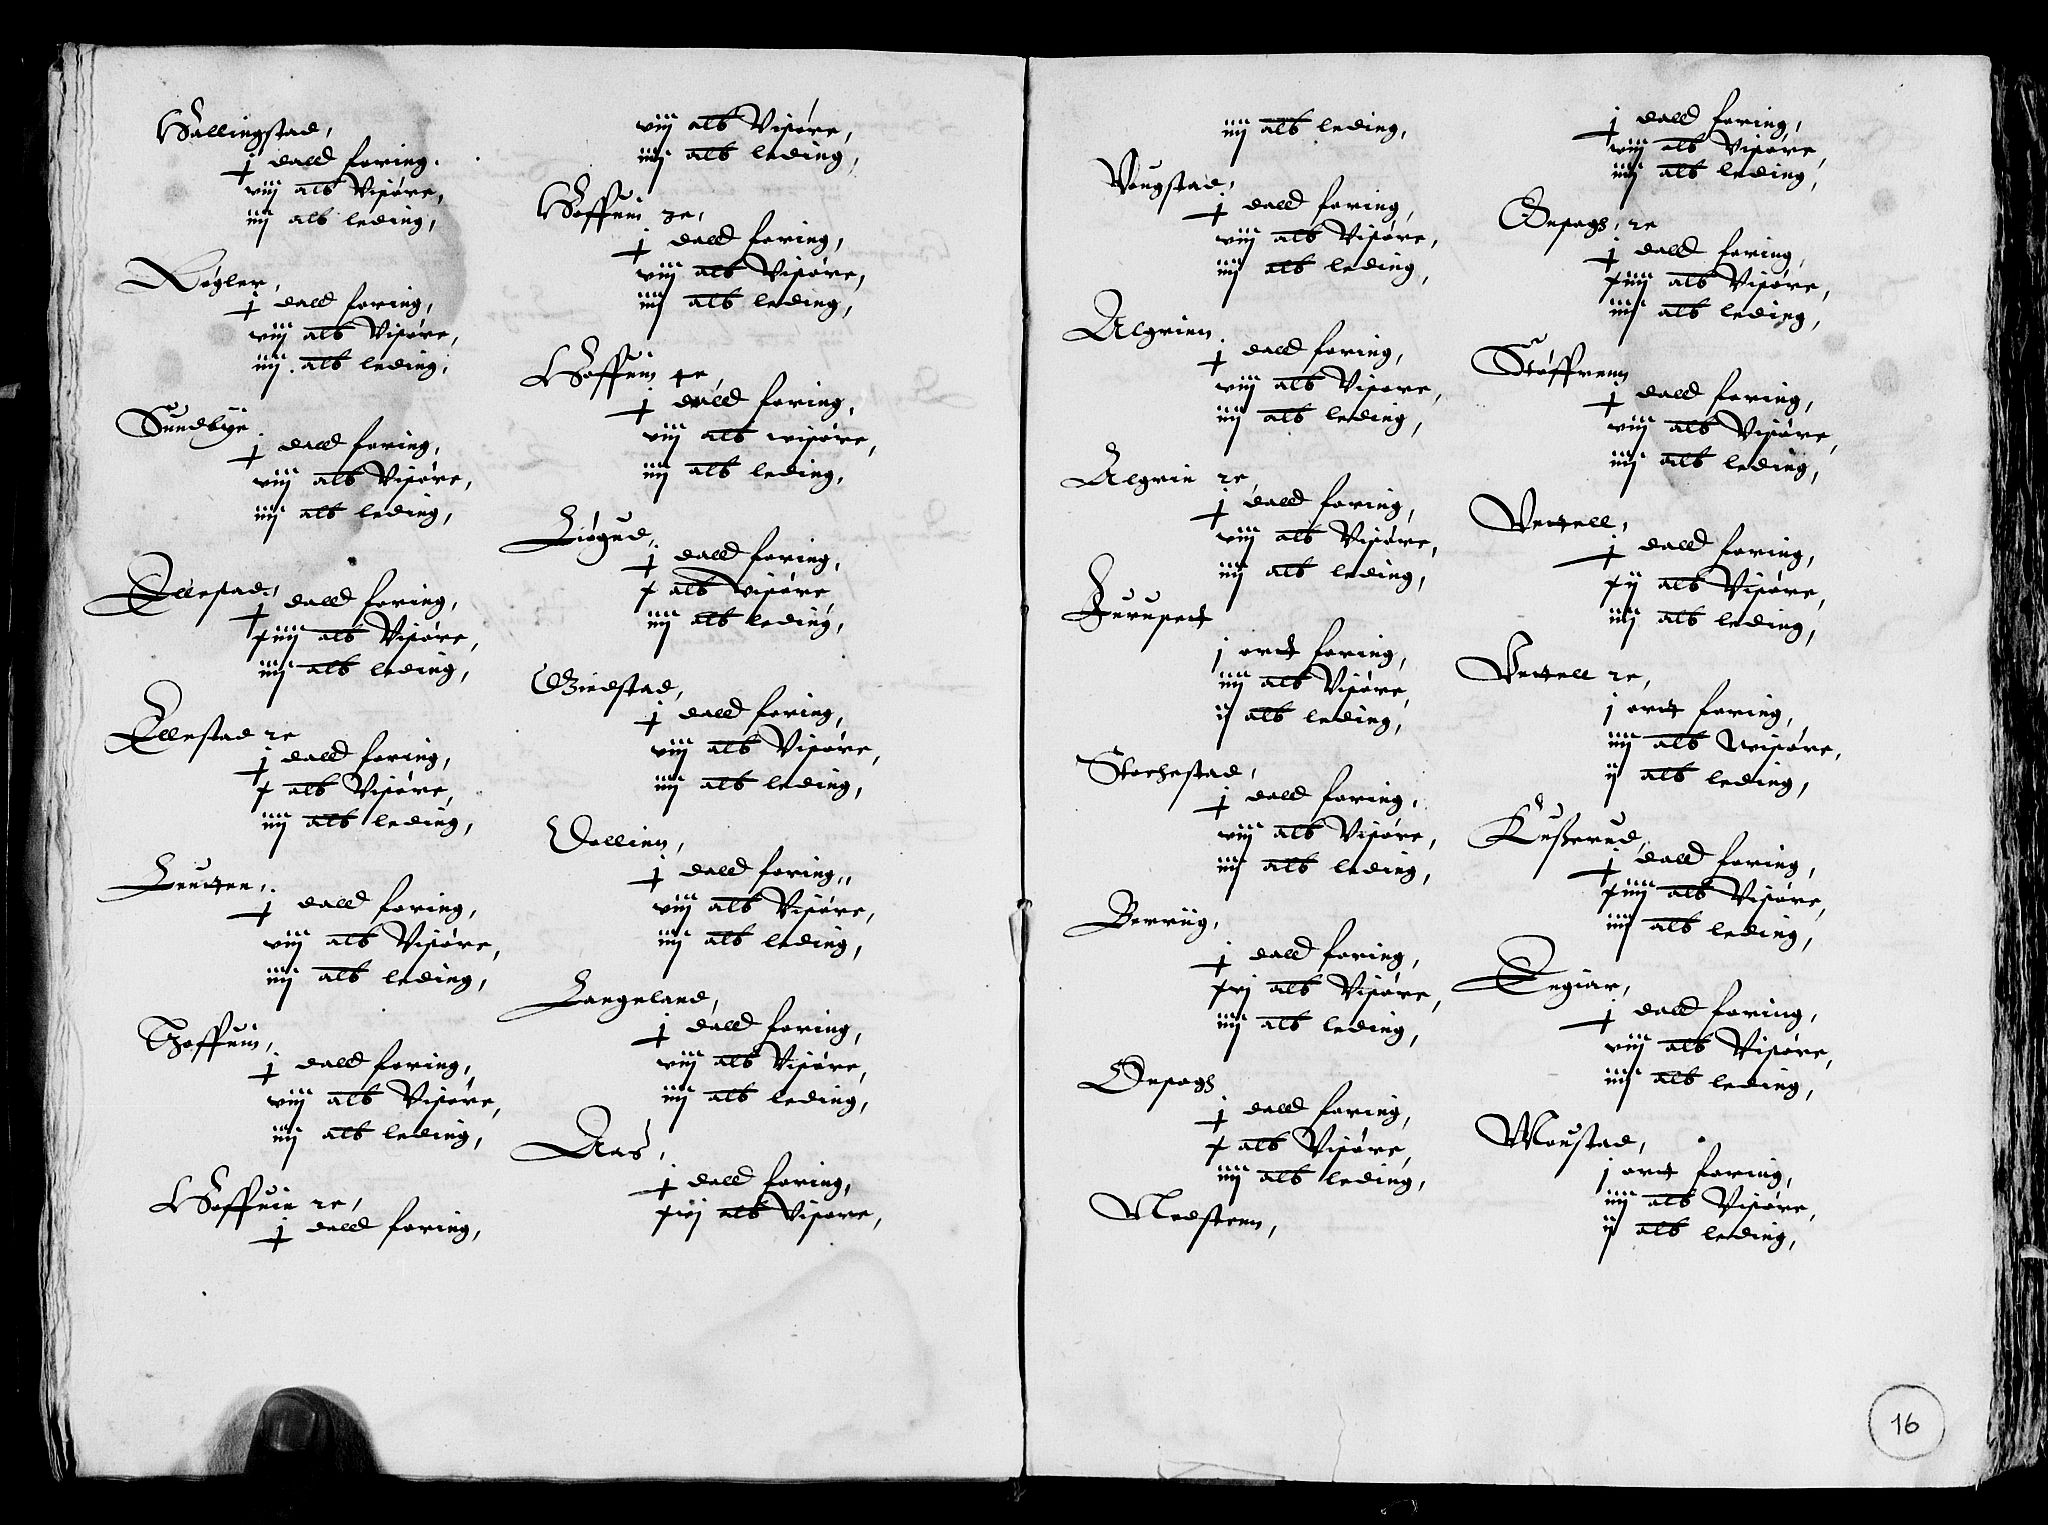 Hallingstad,
j dalld foring.
viij alb Visøre,
iiij alb leding,
Røgler,
j dalld foring,
viij alb Visøre,
iiij alb leding,
Sundbye
j dalld foring,
viij alb Visøre,
iiij alb leding,
Ellestad,
j dalld foring,
xiiij alb Visøre,
iiij alb leding,
Ellestad 2e
j dalld foring,
x alb Visøre,
iiij alb leding,
Leutten,
j dalld foring,
viij alb Visøre,
iiij alb leding,
Hoffuin,
j dalld foring,
viij alb Visøre,
iiij alb leding,
Hoffuin 2e,
j dalld foring,
viij alb Visøre,
iiij alb leding,
Hoffuin 3e,
j dalld foring,
viij alb Visøre,
iiij alb leding,
Hoffuin 4e,
j dalld foring,
viij alb wisøre,
iiij alb leding,
Liøgud,
j dalld foring,
x alb wisøre
iiij alb leding,
Giedstad,
j dalld foring,
viij alb Visøre,
iiij alb leding,
Dallien,
j dalld foring,
viij alb Visøre,
iiij alb leding,
Langeland,
j dalld foring,
viij alb Visøre,
iiij alb leding,
Aas,
j dalld foring,
xiij alb Visøre,
iiij alb leding,
Vougstad,
j dalld foring,
viij alb Visøre,
iiij alb leding,
Algrien
j dalld foring,
viij alb Visøre,
iiij alb leding,
Algrin 2e,
j dalld foring,
viij alb Visøre,
iiij alb leding,
Furuset
j ortt foring,
iiij alb Visøre,
ij alb leding,
Stochestad,
j dalld foring,
viij alb Visøre,
iiij alb leding,
Berriig,
j dalld foring,
xvj alb Visøre,
iiij alb leding,
Opsags
j dalld foring,
x alb Visøre,
iiij alb leding,
Medsteen,
j dalld foring,
viij alb Visøre,
iiij alb leding,
Opsags, 2e
j dalld foring,
xiiij alb Visøre,
iiij alb leding,
Støffrenn
j dalld foring,
viij alb Visøre,
iiij alb leding,
Vettell,
j dalld foring,
xij alb Visøre,
iiij alb leding,
Vettell 2e,
j ortt foring,
iiij alb Wisøre,
ij alb leding,
Kusserud,
j dalld foring,
xiiij alb Visøre,
iiij alb leding,
Engiar,
j dalld foring,
viij alb Visøre,
iiij alb leding,
Moustad,
j ortt foring,
iiij alb Visøre,
ij alb leding,
16